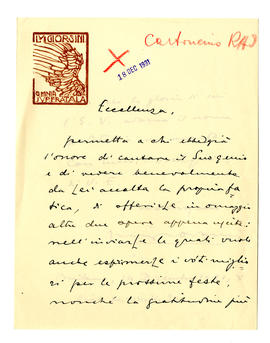 LVIGI ORSINI
OMNIA
SVPERAT ALA
18 DEC 1931
Cartoncino
Eccellenza,
permetta a chi ebbe già
l'onore di cantare il Suo genio
e di vedere benevolmente
da Lei accolta la propria fa
tica, di offrirLe in omaggio
altre due opere appena uscite:
nell'inviarLe le quali vuole
anche esprimerLe i voti miglio
ri per le prossime feste,
nonché la gratitudine più